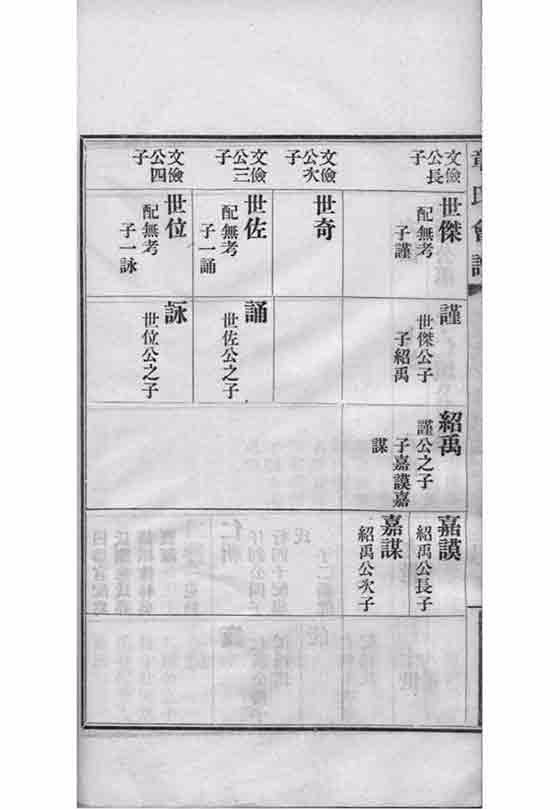 章氏會譜
文儉公長子
世傑
配無考
子謹
謹
世傑公子
子紹禹
紹禹
謹公之子
子嘉謨嘉
謀
嘉謨
紹禹公長子
嘉謀
紹禹公次子
文儉公次子
世奇
文儉公三子
世佐
配無考
子一誦
誦
世佐公之子
文儉公四子
世位
配無考
子一詠
詠
世位公之子